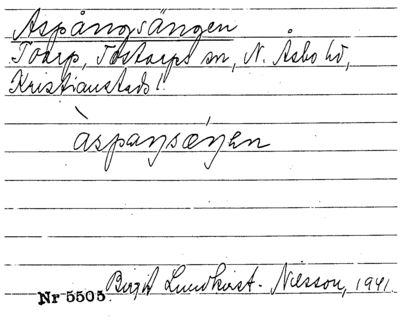 Aspångsängen
Toarp, Tostarps sn, N. Åsbo hd,
Kristianstads l.
àspaŋsǽŋen
Birgit Lundkvist-Nilsson, 1941.
Nr 5505.